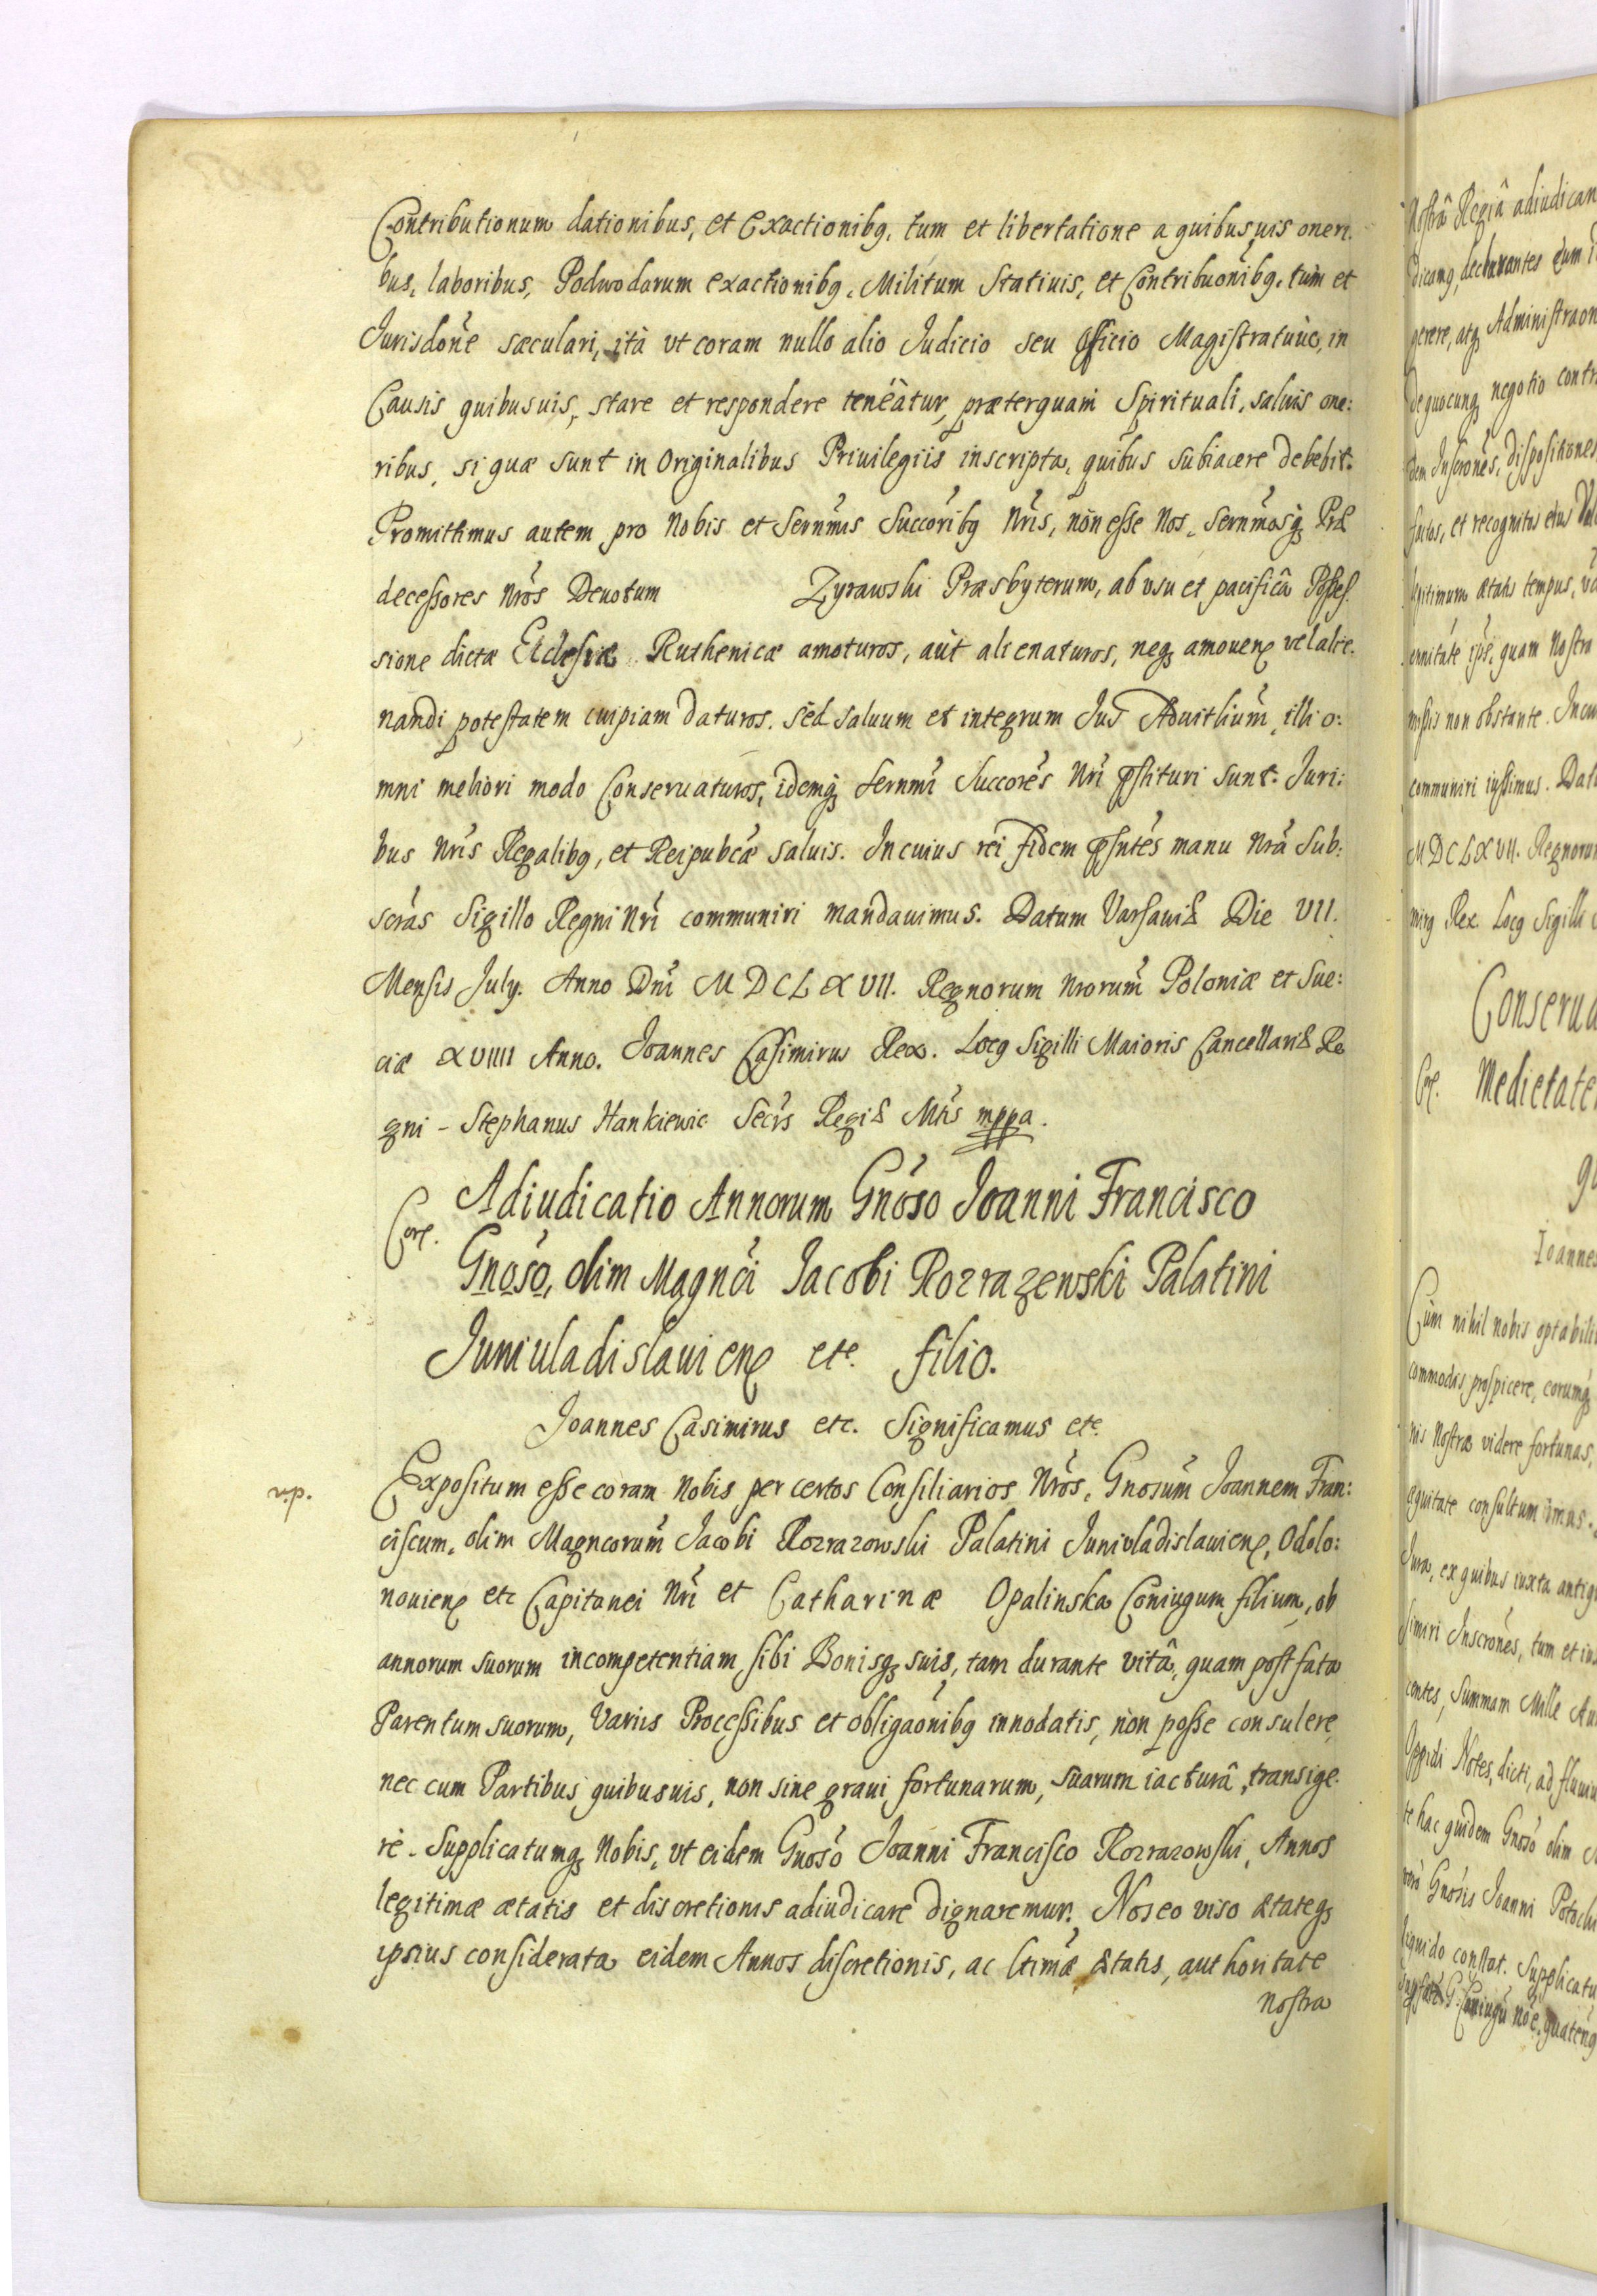 Contributionum dationibus, et Exactionibq, tum et libertatione a quibusuis oneri.
bus, laboribus, Podwodarum exactionibq, Militum Statiuis, et Contribuonibq, tum et
Jurisdone sæculari, ità vt coram nullo alio Judicio seu Officio Magistratuue, in
Causis quibusuis, stare et respondere teneatur, præterquam Spirituali, saluis one:
ribus, si quæ sunt in Originalibus Priuilegiis inscripta, quibus subiacere debebit.
Promittimus autem pro Nobis et Sernmis Succoribq Nris, non esse Nos, Sernmosq Præ
decessores Nros Deuotum Zyrawski Præsbyterum, ab vsu et pacificâ Posses.
sione dictæ Ecclesiæ Ruthenicæ amoturos, aut alienaturos, neq amouen vel alie.
nandi potestatem cuipiam daturos. sed saluum et integrum Jus Aduitlium, illi o:
mni meliori modo Conseruaturos, idemq Sernmi Succores Nri pstituri sunt. Juri:
bus Nris Regalibq, et Reipubcæ saluis. In cuius rei fidem psntes manu Nra Sub:
scras Sigillo Regni Nri communiri mandauimus. Datum Varsauiæ Die VII.
Mensis July. Anno Dni MDCLXVII. Regnorum Nrorum Poloniæ et Sue:
ciæ XVIIII Anno. Joannes Casimirus Rex. Locq Sigilli Maioris Cancellariæ Re
gni - Stephanus Hankiewic Secrs Regiæ Mtis mppa.
Adiudicatio Annorum Gnoso Joanni Francisco
Gnoso, olim Magnci Jacobi Rozrazewski Palatini
Juniuladislauien etc. filio.
Joannes Casimirus etc. Significamus etc.
vp. Expositum esse coram Nobis per certos Consiliarios Nros, Gnosum Joannem Fran:
ciscum, olim Magncorum Jacobi Rozrazowski Palatini Juniuladislauien, Odolo:
nouien etc Capitanei Nri et Catharinæ Opalinska Coniugum filium, ob
annorum suorum incompetentiam, sibi Bonisq suis, tam durante vitâ, quam post fata
Parentum suorum, Variis Processibus et obligaonibq innodatis, non posse consulere,
nec cum Partibus quibusuis, non sine graui fortunarum, suarum iacturâ, transige.
re. Supplicatumq Nobis, vt eidem Gnoso Joanni Francisco Rozrazowski, Annos
legitimæ ætatis et discretionis adiudicare dignaremur. Nos eo viso ætateq
ipsius considerata eidem Annos discretionis, ac ltimæ ætatis, authoritate
nostra
nostrâ Regiâ adiudican
dicamq, declarantes eum
gerere, atq Administraon
de quocunq negotio contr
dem Inscrones, dispositiones
factos, et recognitis eius
legitimum ætatis tempus,
quam Nostra
non obstante. Incui
communiri iussimus. Dat
MDCLXVII. Regnorum
mirq Rex. Locq Sigilli
Conserua
Medietate
Joannes
Cum nihil nobis optabili
commodis prospicere, eorumq
nis Nostræ videre fortunas,
æquitate consultum imus.
Jura, ex quibus iuxta antiq
simiri Inscrones, tum et
centes, Summam Mille
Oppidi Notes, dicti, ad fluuiu
te hac quidem Gnoso olim
Gnosis Joanni Potocki
liquido constat. Supplicatu
Coniugu noe, quatenq